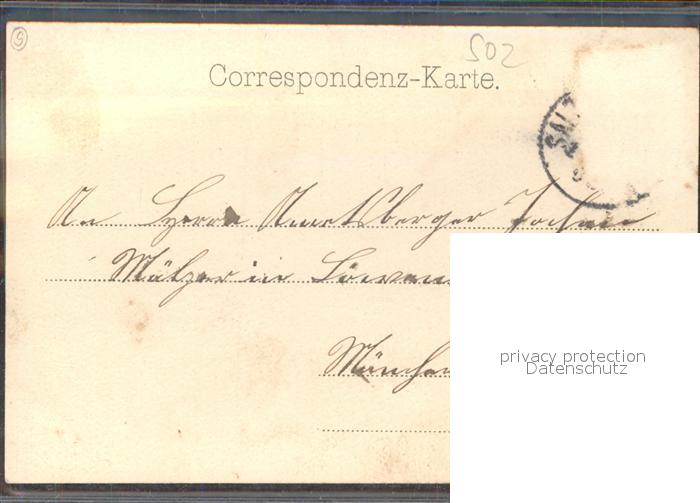 S
502
Correspondenz-Karte.
SALZ
An Herrn Ametsberger
Mälzer in Löwen
München
privacy protection
Datenschutz